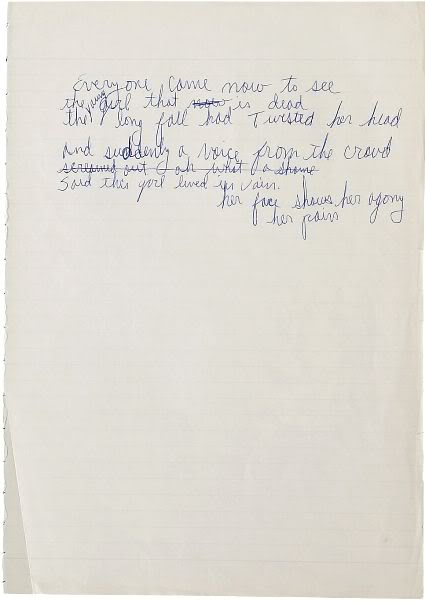 Everyone came now to see
the young girl that now is dead
the long fall had Twisted her head
and suddenly a voice from the crowd
screamed out oh what a shame
Said this girl lived in vain.
her face shows her agony
her pain